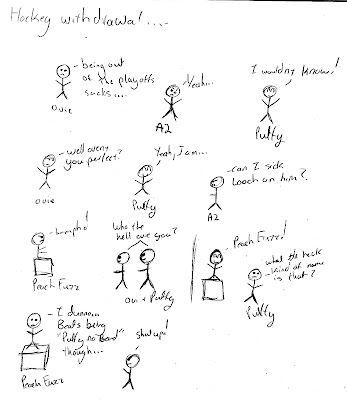 Hockey withdrawal....
being out
of the playoffs
sucks....
Ovie
Yeah...
A2
I wouldn't know!
Puffy
well aren't
you perfect?
Ovie
Yeah, I am...
Puffy
can I side
leach on him?
A2
humph!
Peach Fuzz
Who the
hell are you?
Ovi + Puffy
Peach Fuzz!
what the heck
kind of name
is that?
Puffy
I dunno...
Beats being
"Puffy no Beard"
though...
Peach Fuzz
shut up!